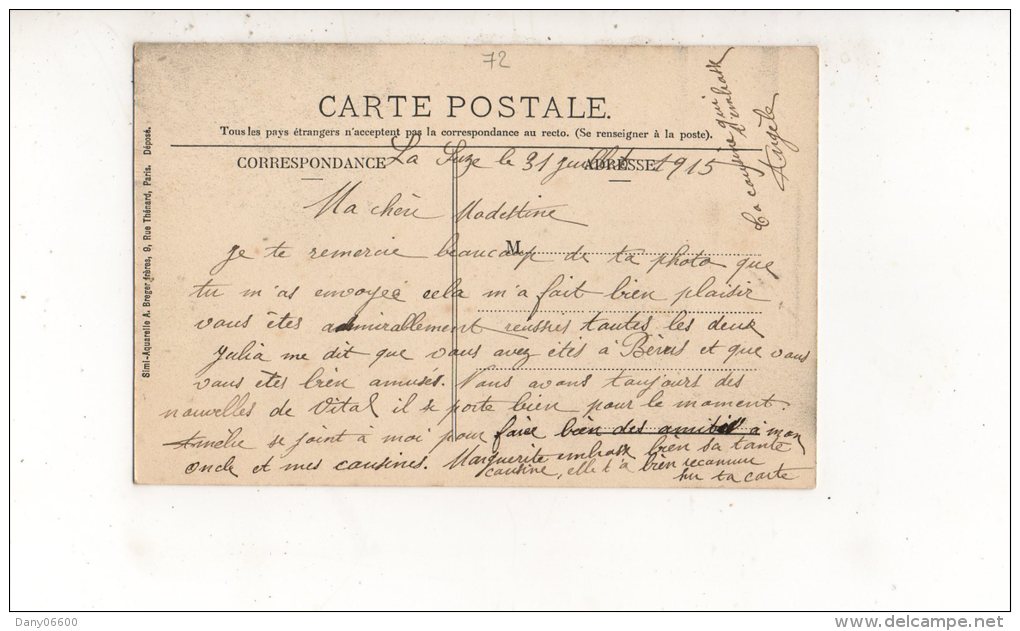 72
CARTE POSTALE.
Tous les pays étrangers n'acceptent pas la correspondance au recto. (Se renseigner à la poste).
CORRESPONDANCE
ADRESSE
La Suze le 31 juillet 1915
Ma chère Madeleine
M
Je te remercie beaucoup de ta photo que
tu m'as envoyée cela m'a fait bien plaisir
vous êtes admirallement reussies toutes les deux
Julia me dit que vous avez étés à Bérus et que vous
vous êtes bien amusés. Nous avons toujours des
nouvelles de Vital il se porte bien pour le moment.
Amélie se joint à moi pour faire bien des amitiés à mon
oncle et mes cousines. Marguerite embrasse bien sa tante
cousine, elle t'a bien reconnue
sur ta carte
Ta cousine qui
t'embrasse
Angèle
Simi-Aquarelle A. Breger frères, 9, Rue Thénard, Paris. Déposé.
Dany06600
www.delcampe.net